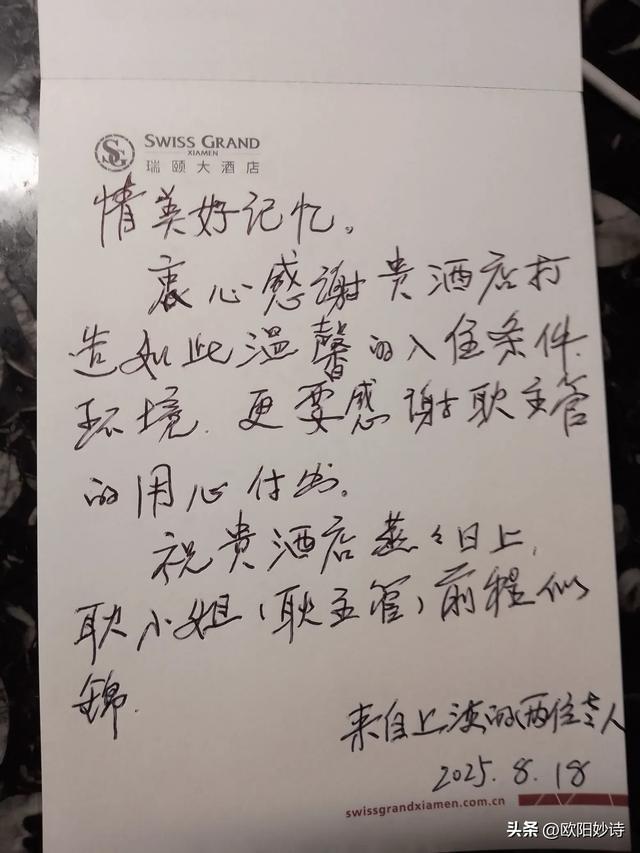 SWISS GRAND
XIAMEN
瑞颐大酒店
情美好记忆。
衷心感谢贵酒店打
造如此温馨的入住条件、
环境. 更要感谢耿主管
的用心付出。
祝贵酒店蒸々日上,
耿小姐(耿主管)前程似
锦.
来自上海的两位老人
2025.8.18
swissgrandxiamen.com.cn
头条 @欧阳妙诗